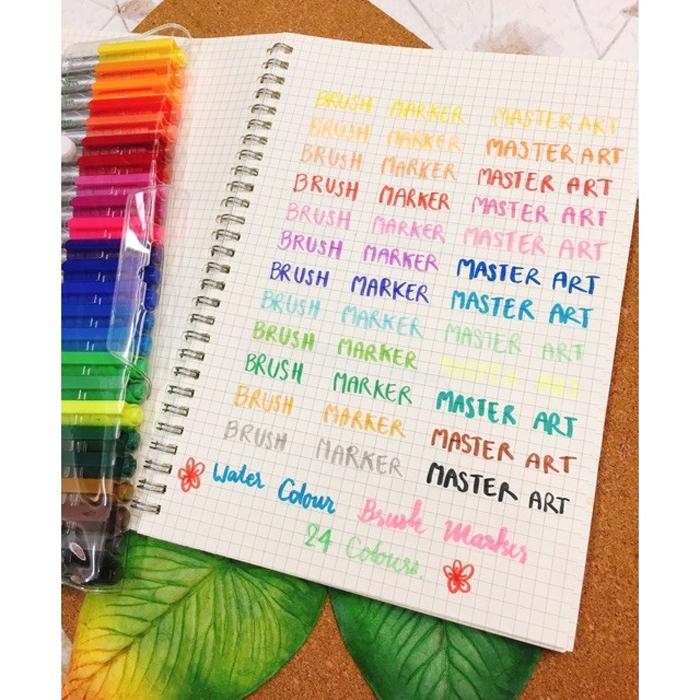 BRUSH MARKER MASTER ART
BRUSH MARKER MASTER ART
BRUSH MARKER MASTER ART
BRUSH MARKER MASTER ART
BRUSH MARKER MASTER ART
BRUSH MARKER MASTER ART
BRUSH MARKER MASTER ART
BRUSH MARKER MASTER ART
BRUSH MARKER MASTER ART
BRUSH MARKER MASTER ART
BRUSH MARKER MASTER ART
BRUSH MARKER MASTER ART
Water Colour Brush Marker
24 Colours.